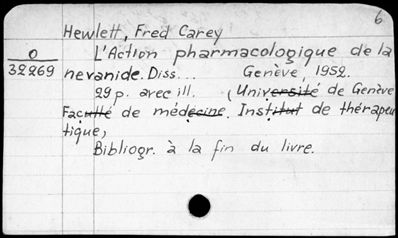 6
Hewlett, Fred Carey
O
32269
L'Action pharmacologique de la
nevanide. Diss... Genève, 1952.
29 p. avec ill. (Université de Genève
Faculté de médecine. Institut de thérapeu
tique,
Bibliogr. à la fin du livre.